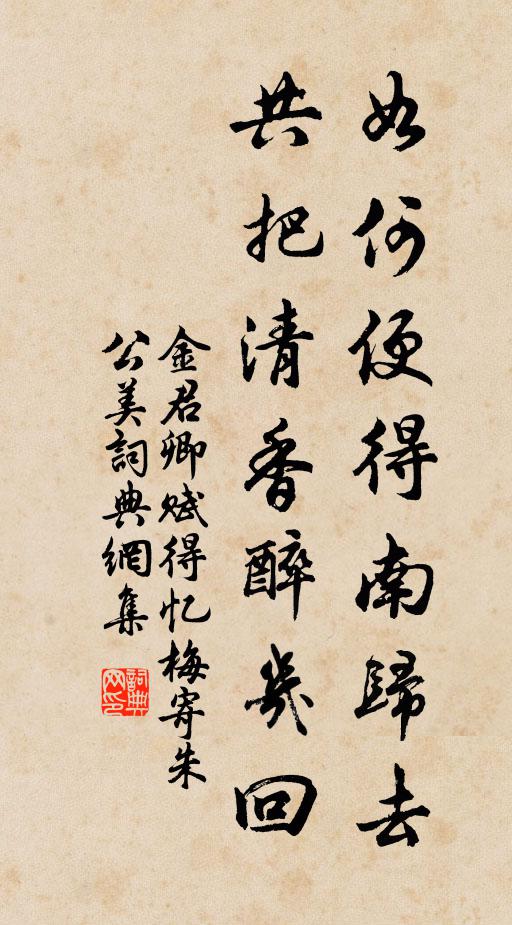 如何便得南歸去
共把清香醉幾回
金君卿賦得忆梅寄朱
公美詞典網集
詞典
网印